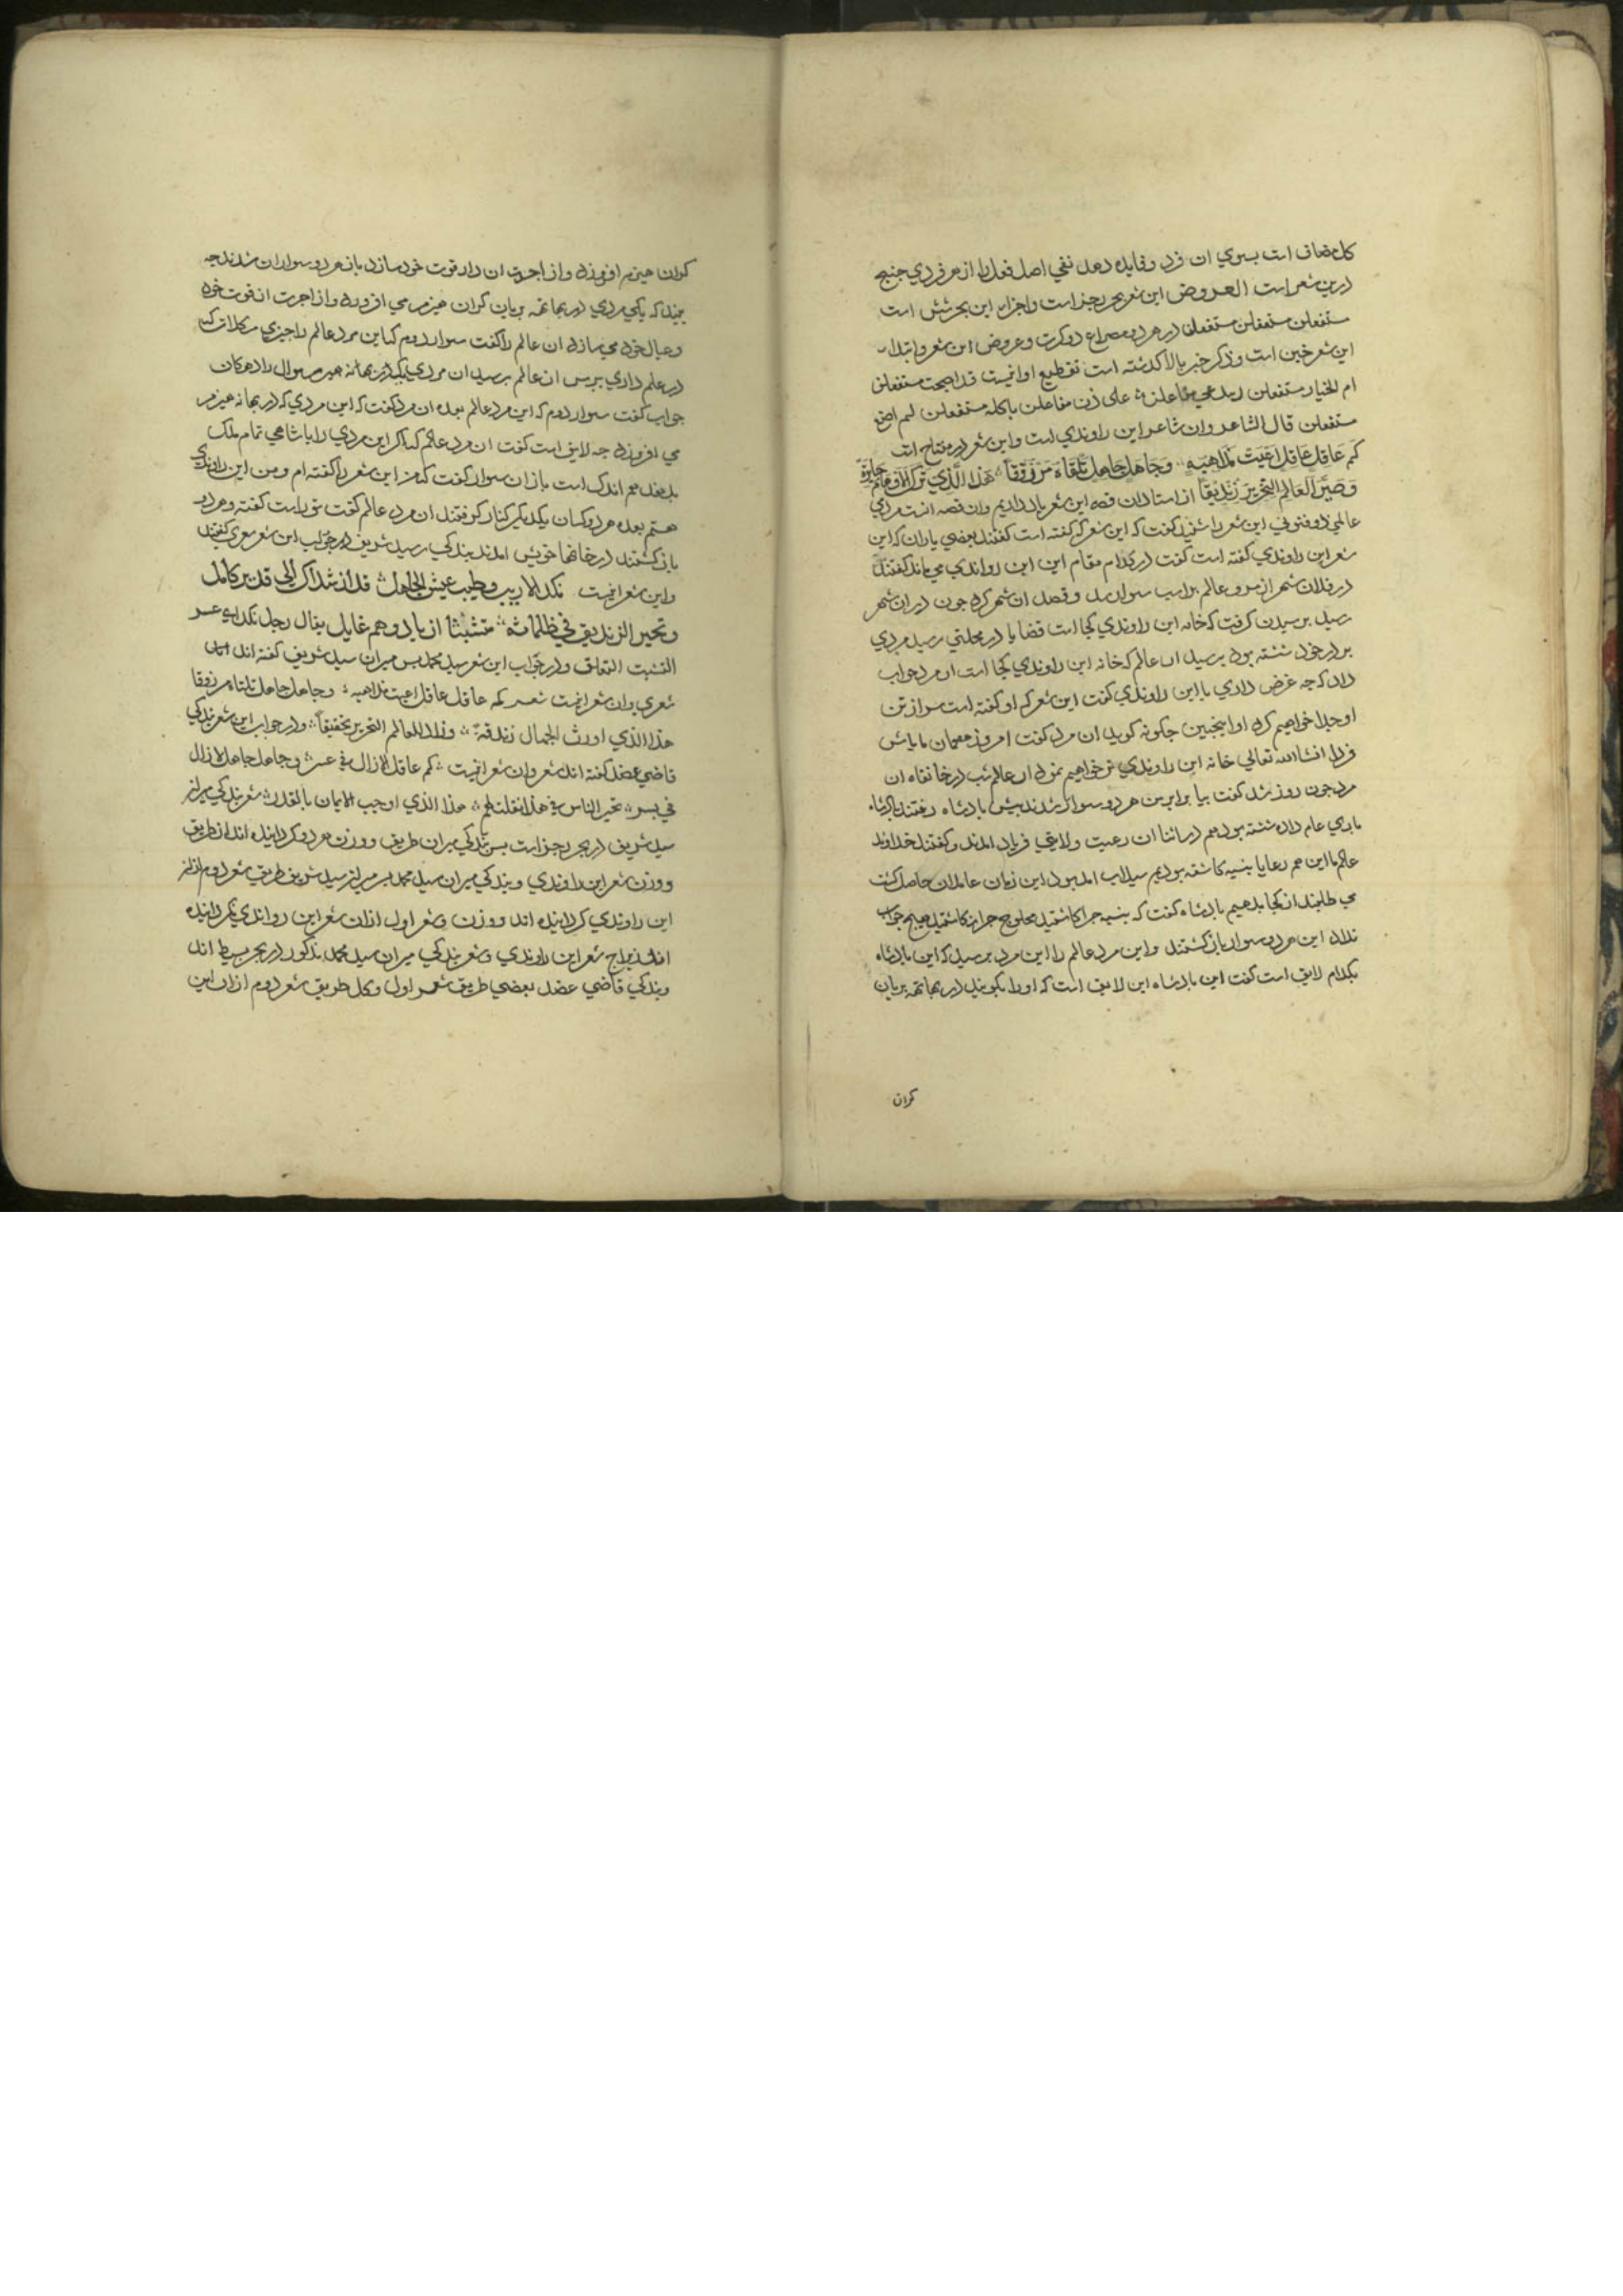 كل مضاف است بسوي ان فرد و فايده دهد نفي اصل فعل را از هر فردي جنبح
درين شعر است العروض اين شعر بحر رجز است واجزاء اين بحر شش است
مستفعلن مستفعلن مستفعلن در هر دو مصراع دو كرت وعروض اين شعر وابتداء
اين شعر خبن است وذكر خبن بالا كذشته است تقطيع او اينست قد اصبحت مستفعلن
ام الخيار مستفعلن تدعي مفاعلن على ذن مفاعلن باكله مستفعلن لم اصنع
مستفعلن قال الشاعر وان شاعر ابن راوندي است واين شعر در مفتاح است
كَم عَاقِلٍ عَاقِلٍ اَعْيَتْ مَذَاهِبُهُ وَجَاهِلٍ جَاهِلٍ تَلْقَاهُ مَرْزُوْقًا هَذَا الَّذِي تَرَكَ الْاَوْهَامَ حَايِرَةً
وَصَيَّرَ الْعَالِمَ النِّحْرِيْرَ زِنْدِيْقًا از استادان قصه اين شعر ياد داريم وان قصه انست مردي
عالمي ذو فنوني اين شعر را شنيد كفت كه اين شعر كه كفته است كفتند بعضي ياران كه اين
شعر ابن راوندي كفته است كفت در كدام مقام اين ابن رواندي مي ماند كفتند
در فلان شهر از مرو عالم بر اسب سوار شد و قصد ان شهر كرد جون در ان شهر
رسيد برسيدن كرفت كه خانه ابن راوندي كجا است قضا را در محلتي رسيد مردي
بر در خود نشسته بود برسيد ان عالم كه خانه ابن راوندي كجا است ان مرد جواب
داد كه جه غرض داري با ابن راوندي كفت اين شعر كه او كفته است سر از تن
او جدا خواهيم كرد او اينجنين جكونه كويد ان مرد كفت امروز مهمان ما باش
فردا انشاالله تعالي خانه ابن راوندي تر خواهيم نمود ان عالم شب در خانقاه ان
مرد جون روز شد كفت بيا برابر من هر دو سوار شدند بيش بادشاه رفتند بادشاه
باري عام داده نشسته بود هم در اثنا ان رعيت ولايتي فرياد امدند و كفتند خداوند
عالم ما اين هم رعايا بنبه كاشته بوديم سيلاب امد ببود اين زمان عاملان حاصل كشت
مي طلبند از كجا بدهيم بادشاه كفت كه بنبه جرا كاشتيد محلوج جرا نكاشتيد هيج جواب
نداد اين هر دو سوار باز كشتند واين مرد عالم را اين مرد برسيد كه اين بادشاه
بكدام لايق است كفت اين بادشاه اين لايق است كه او را بكويند در بهاتهه بريان
كران
كران هيزم افروزد و از اجرت ان دار قوت خود سازد باز هر دو سواران شدند جه
بيند كه يكي مردي در بهاتهه بريان كران هيزم مي افروزد و از اجرت ان قوت خود
وعيال خود مي سازد ان عالم را كفت سوار دوم كه اين مرد عالم را جيزي
در علم داري ببرس ان عالم برسيد ان مردي كه در بهاتهه هيزم سوال را دهد كان
جواب كفت سوار دوم كه اين مرد عالم بعده ان مرد كفت كه اين مردي كه در بهاتهه هيزم
مي افروزد جه لايق است كفت ان مرد عالم كه اكر اين مردي را باشاهي تمام ملك
بدهند هم اندك است باز ان سوار كفت كه من اين شعر را كفته ام ومن ابن راوندي
هستم بعده هر دو كسان يكديكر كنار كرفتند ان مرد عالم كفت تو راست كفته و هر دو
باز كشتند در خانها خويش امدند بندكي سيد شريف در جواب اين شعر معري كفتند
واين شعر اينست نكد الاريب وطيب عيش الجاهل قد ارشداك الى قدير كامل
وتحير الزنديق في ظلماته متشبثا از باد وهم غايل يقال رجل نكد اي عسر
التشبت التعلق ودر جواب اين شعر سيد محمد بسر ميران سيد شريف كفته اند
شعري وان شعر اينست شعر كم عاقل عاقل اعيت مذاهبه وجاهل جاهل تلقاه مرزوقا
هذا الذي اورث الجهال زندقة وزاد للعالم النحرير تحقيقاً ودر جواب اين شعر بندكي
قاضي عضد كفته اند شعر وان شعر اينست كم عاقل لازال في عسر وجاهل جاهل لازال
في يسر تحير الناس في هذا فقلت لهم هذا الذي اوجب الايمان بالقدر شعر بندكي ميران
سيد شريف در بحر رجز است بس بندكي ميران طريق ووزن هر دو كردانيده اند از طريق
ووزن شعر ابن راوندي وبندكي ميران سيد محمد بسر ميران سيد شريف طريق شعر دوم از ان
ابن راوندي كردانيده اند ووزن وشعر اول ازان شعر ابن رواندي نكردانيده
اند زيراج شعر ابن راوندي وشعر بندكي ميران سيد محمد مذكور در بحر بسيط اند
وبندكي قاضي عضد بعضي طريق شعر اول وكل طريق شعر دوم ازان ابن